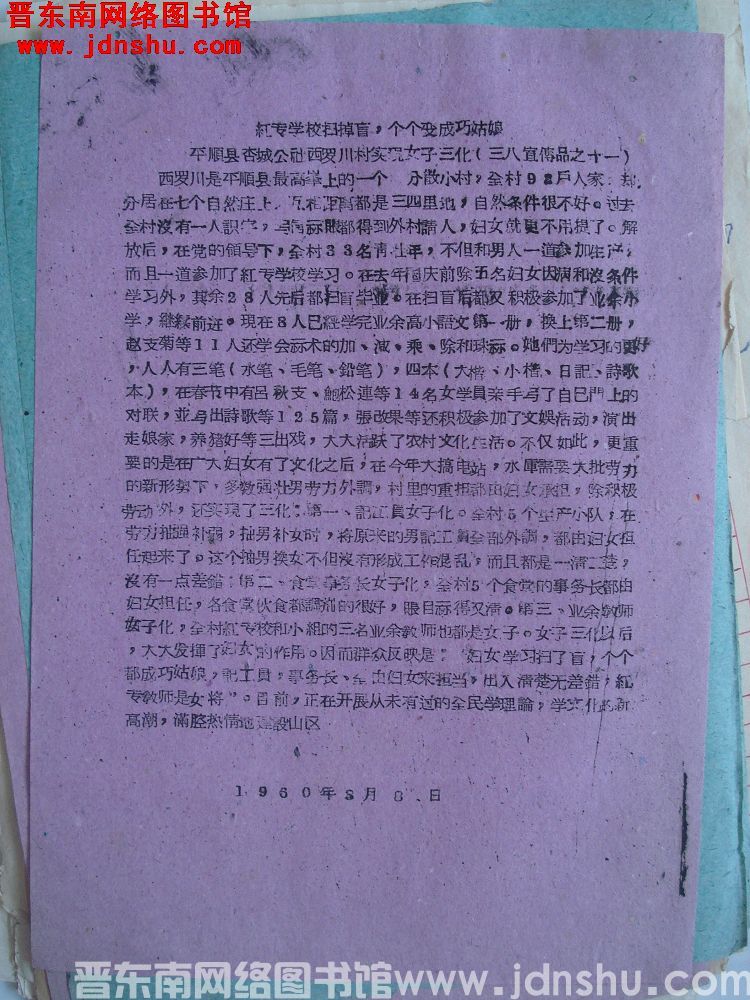 晋东南网络图书馆
www.jdnshu.com
紅专学校扫掉盲,个个变成巧姑娘
平順县杏城公社西罗川村实现女子三化(三八宣傳品之十一)
西罗川是平順县最高峯上的一个 分散小村,全村92戶人家,却
分居在七个自然庄上,距离都是三四里地,自然条件很不好。过去
全村沒有一人識字,写信祘賬都得到外村請人,妇女就更不用提了。解
放后,在党的領导下,全村33名青壮年,不但和男人一道参加生产,
而且一道参加了紅专学校学习。在去年国庆前除五名妇女因病和沒条件
学习外,其余28人先后都扫盲毕业。在扫盲后都又积极参加了业余小
学,継続前进。現在8人已經学完业余高小語文第一册,换上第二册,
赵支菊等11人还学会祘术的加、减、乘、除和珠祘。她們为学习的更好
,人人有三笔(水笔、毛笔、鉛笔),四本(大楷、小楷、日記、詩歌
本),在春节中有呂秋支、鲍松連等14名女学員亲手写了自己門上的
对联,並写出詩歌等125篇,張改果等还积极参加了文娱活动,演出
走娘家,养猪好等三出戏,大大活跃了农村文化生活。不仅如此,更重
要的是在广大妇女有了文化之后,在今年大搞电站,水庫需要大批劳力
的新形勢下,多数强壮男劳力外調,村里的重担都由妇女承担,除积极
劳动外,还实現了三化:第一、記工員女子化。全村5个生产小队,在
劳力抽强补弱,抽男补女时,将原来的男記工員全部外調,都由妇女担
任起来了。这个抽男换女不但沒有形成工作混乱,而且都是一清二楚,
沒有一点差錯;第二、食堂事务长女子化,全村5个食堂的事务长都由
妇女担任,各食堂伙食都調剂的很好,賬目祘得又清。第三、业余教师
女子化,全村紅专校和小組的三名业余教师也都是女子。女子三化以后
,大大发揮了妇女的作用。因而群众反映是:"妇女学习扫了盲,个个
都成巧姑娘,記工員,事务长、全由妇女来担当,出入清楚无差錯,紅
专教师是女将"。目前,正在开展从未有过的全民学理論,学文化的新
高潮,滿腔热情地建設山区
1960年3月8日
晋东南网络图书馆www.jdnshu.com